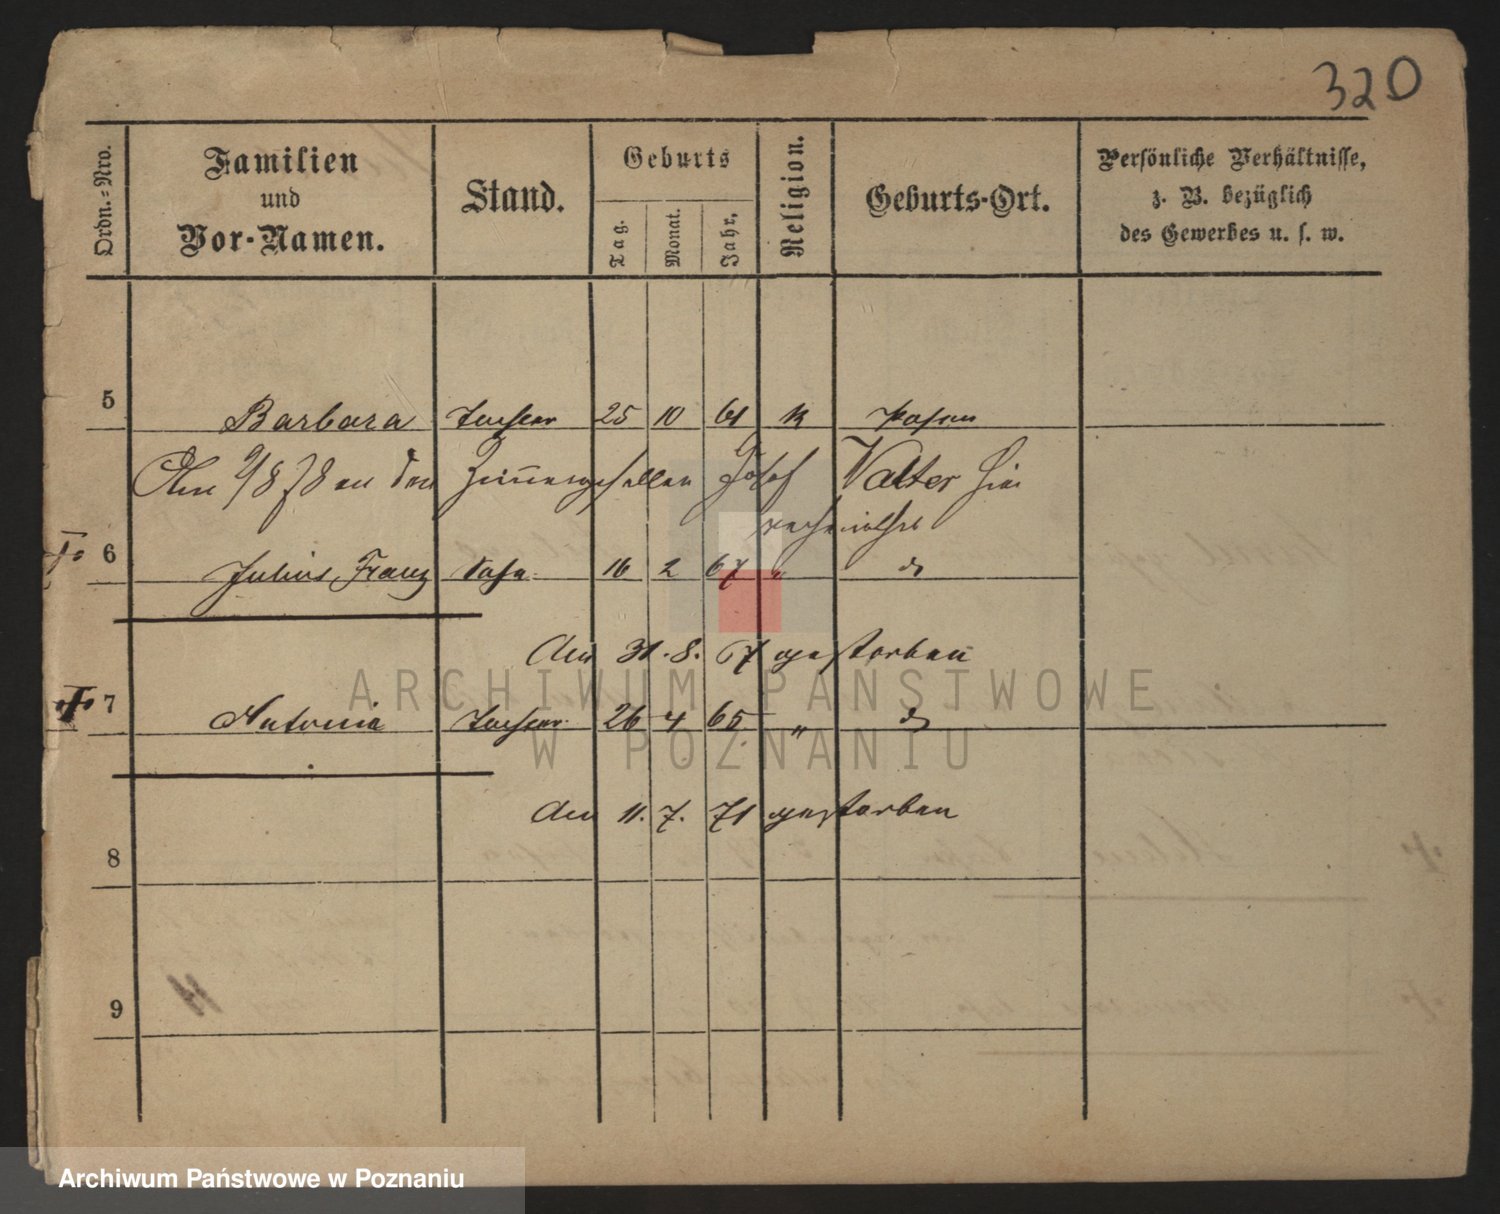 320
Ordn.-Nro.
Familien
und
Vor-Namen.
Stand.
Geburts
Tag.
Monat.
Jahr.
Religion.
Geburts-Ort.
Persönliche Verhältnisse,
z. B. bezüglich
des Gewerbes u. s. w.
5 Barbara Tochter 25 10 61 K Posen
Am 9/8 78 an den Zimmergesellen Josef Walter hier
verheirathet
6 Julius Franz Sohn 16 2 67 " do
Am 31. 8. 67 gestorben
7 Antonia Tochter 26 4 65 " do
Am 11. 7. 71 gestorben
8
9
ARCHIWUM PAŃSTWOWE
W POZNANIU
Archiwum Państwowe w Poznaniu